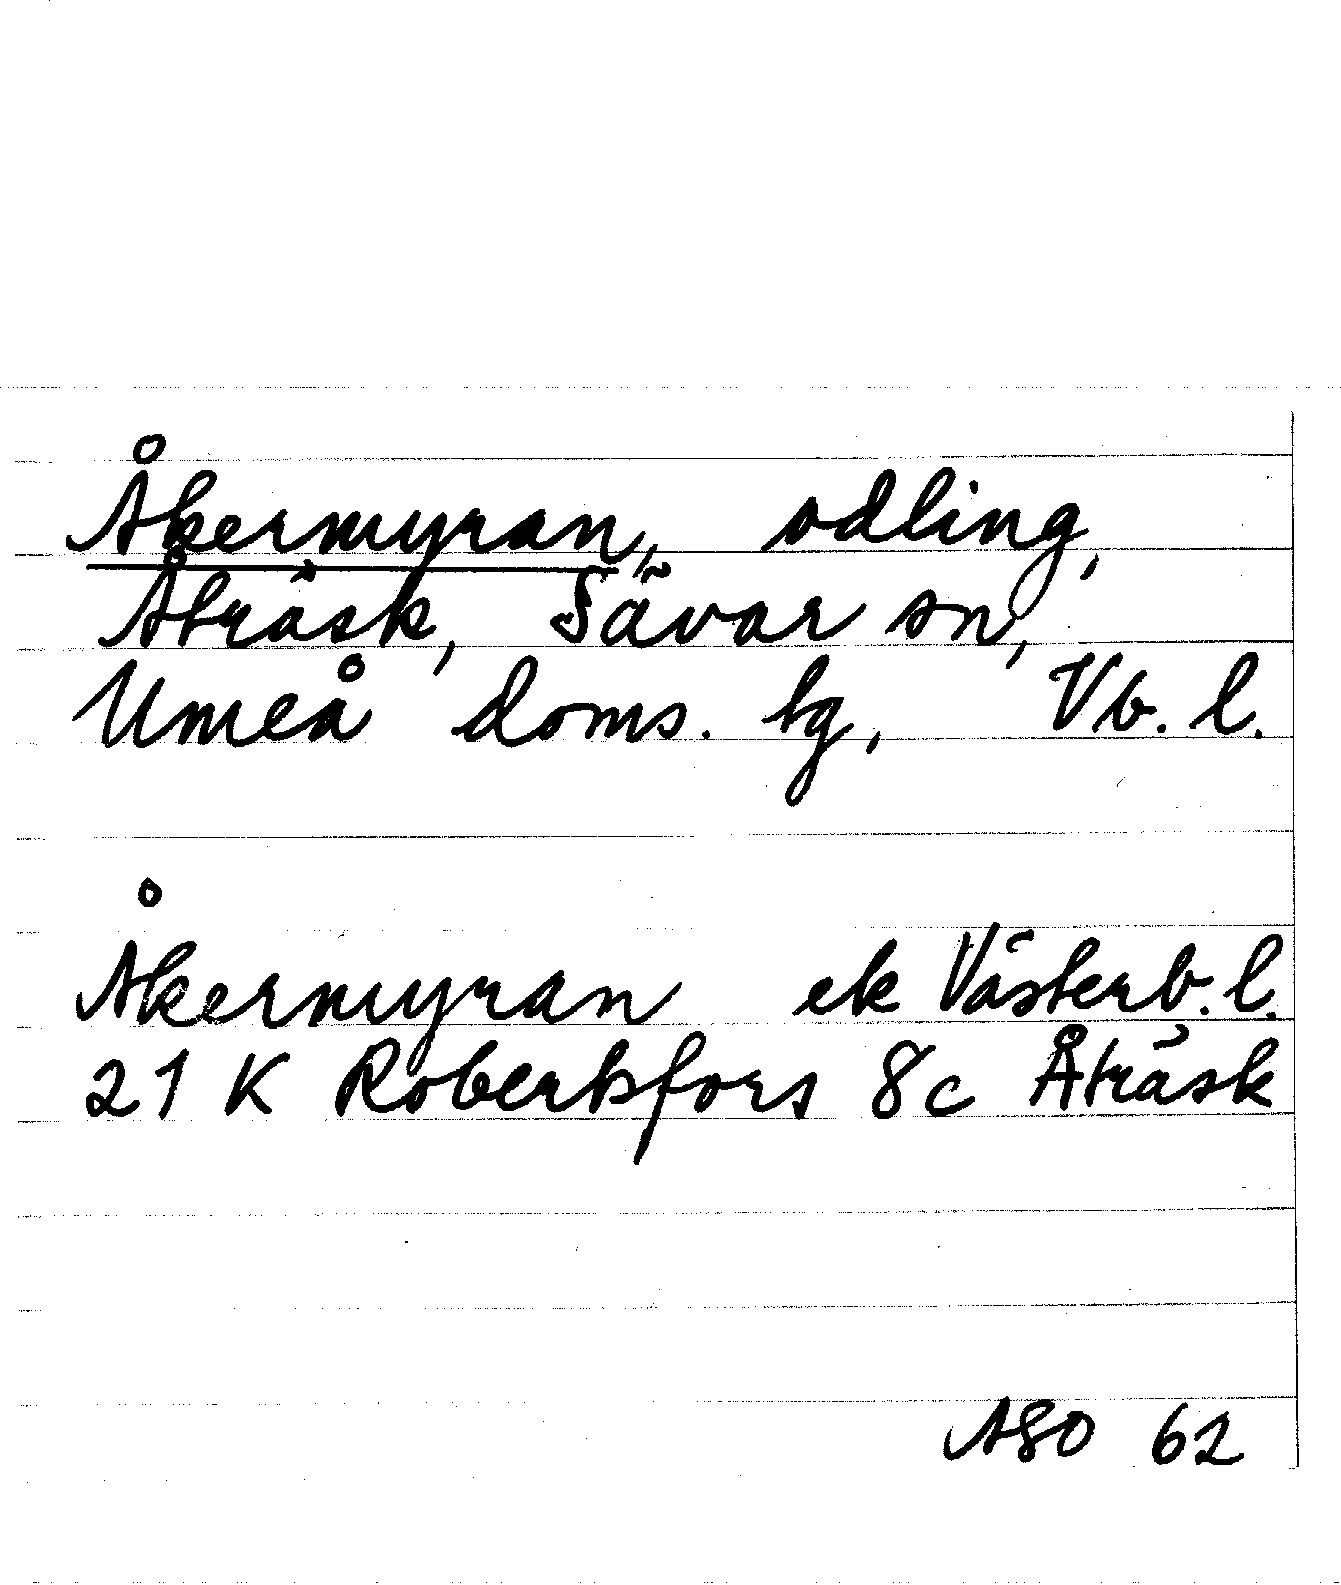 Åkermyran, odling,
Åträsk, Sävar sn,
Umeå doms. tg, Vb. l.
Åkermyran ek Västerb. l.
21 K Robertsfors 8c Åträsk
ASO 62